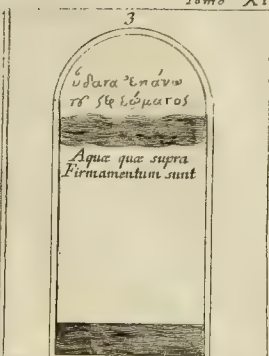 Tomo XI
3
ὕδατα ἐπάνω
τȣ ϛερεώματος
Aquæ quæ supra
Firmamentum sunt